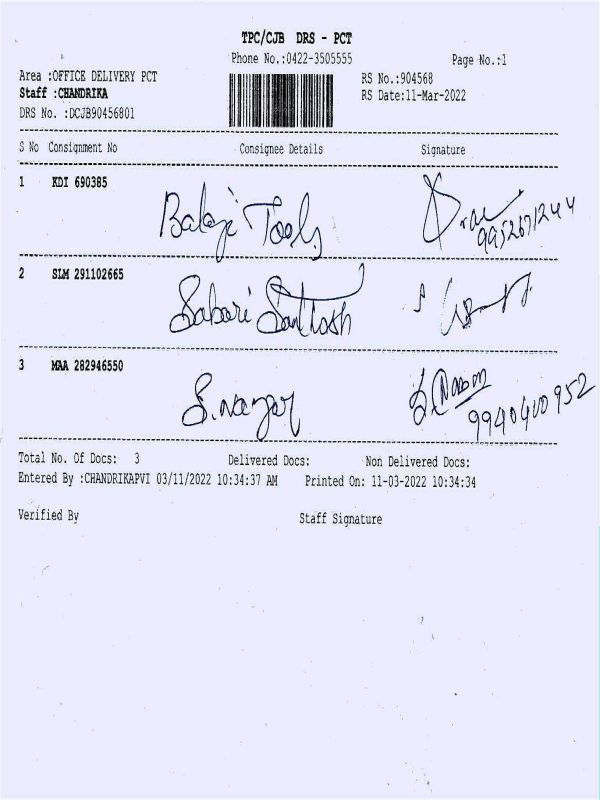 TPC/CJB DRS - PCT
Phone No.:0422-3505555 Page No.:1
Area :OFFICE DELIVERY PCT RS No.:904568
Staff :CHANDRIKA RS Date:11-Mar-2022
DRS No. :DCJB90456801
S No Consignment No Consignee Details Signature
1 KDI 690385 Balaji Tools
9952671244
2 SLM 291102665 Sabari Santhosh
3 MAA 282946550 S.nagar
9940400952
Total No. Of Docs: 3 Delivered Docs: Non Delivered Docs:
Entered By :CHANDRIKAPVI 03/11/2022 10:34:37 AM Printed On: 11-03-2022 10:34:34
Verified By Staff Signature